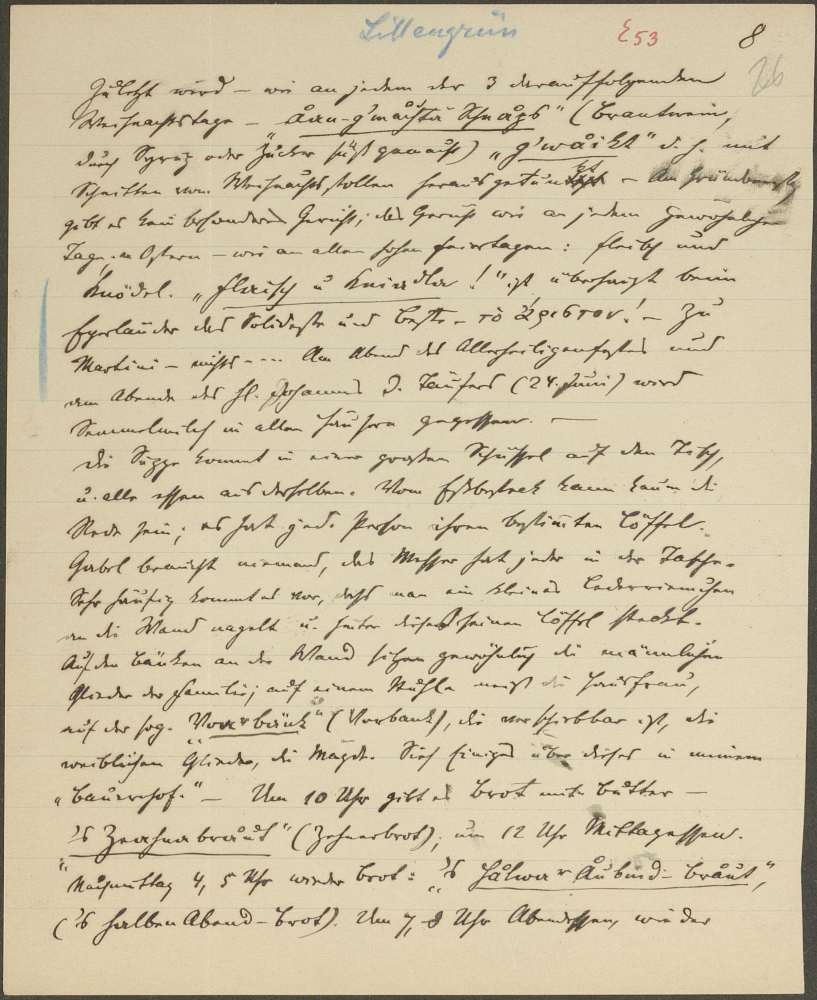 Lillengrün E53 8
26
Zuletzt wird – wie an jedem der 3 darauffolgenden
Weihnachtstage – „Åan-g'måchta Schnåps" (Brantwein,
durch Syrup oder Zucker süß gemacht) „g'wåikt" d. h. mit
Schnitten von Weihnachtsstollen herausgetunkt – Am Gründonnerstag
gibt es kein besonderes Gericht; das Gericht wie an jedem gewöhnlichen
Tage. – Ostern – wie an allen hohen Feiertagen: Fleisch und
Knödel. „Fleisch u Kniadla!" ist überhaupt beim
Egerländer das Solideste und Beste – τὸ ἄριστον! – Zu
Martini – nichts – ... Am Abend des Allerheiligenfestes und
am Abende des hl. Johannes d. Täufers (24. Juni) wird
Semmelmilch in allen Häusern gegessen. –
Die Suppe kommt in einer großen Schüssel auf den Tisch,
u. alle essen aus derselben. Vom Eßbesteck kann kaum die
Rede sein; es hat jede Person ihren bestimmten Löffel.
Gabel braucht niemand, das Messer hat jeder in der Tasche.
Sehr häufig kommt es vor, daß man ein kleines Lederriemchen
an die Wand nagelt u. hinter dieses seinen Löffel steckt.
Auf den Bänken an der Wand sitzen gewöhnlich die männlichen
Glieder der Familie; auf einem Stuhle meist die Hausfrau,
auf der sog. „Voarbänk" (Vorbank), die verschiebbar ist, die
weiblichen Glieder, die Mägde. Sieh Einiges über dieses in meinem
„Bauernhof." – Um 10 Uhr gibt es Brot mit Butter –
„'s Zeahnabråut" (Zehnerbrot); um 12 Uhr Mittagessen.
Nachmittag 4, 5 Uhr wieder Brot: „'s hålwar Åubnd-bråut",
('s halben Abend-brot). Um 7, 8 Uhr Abendessen, wieder